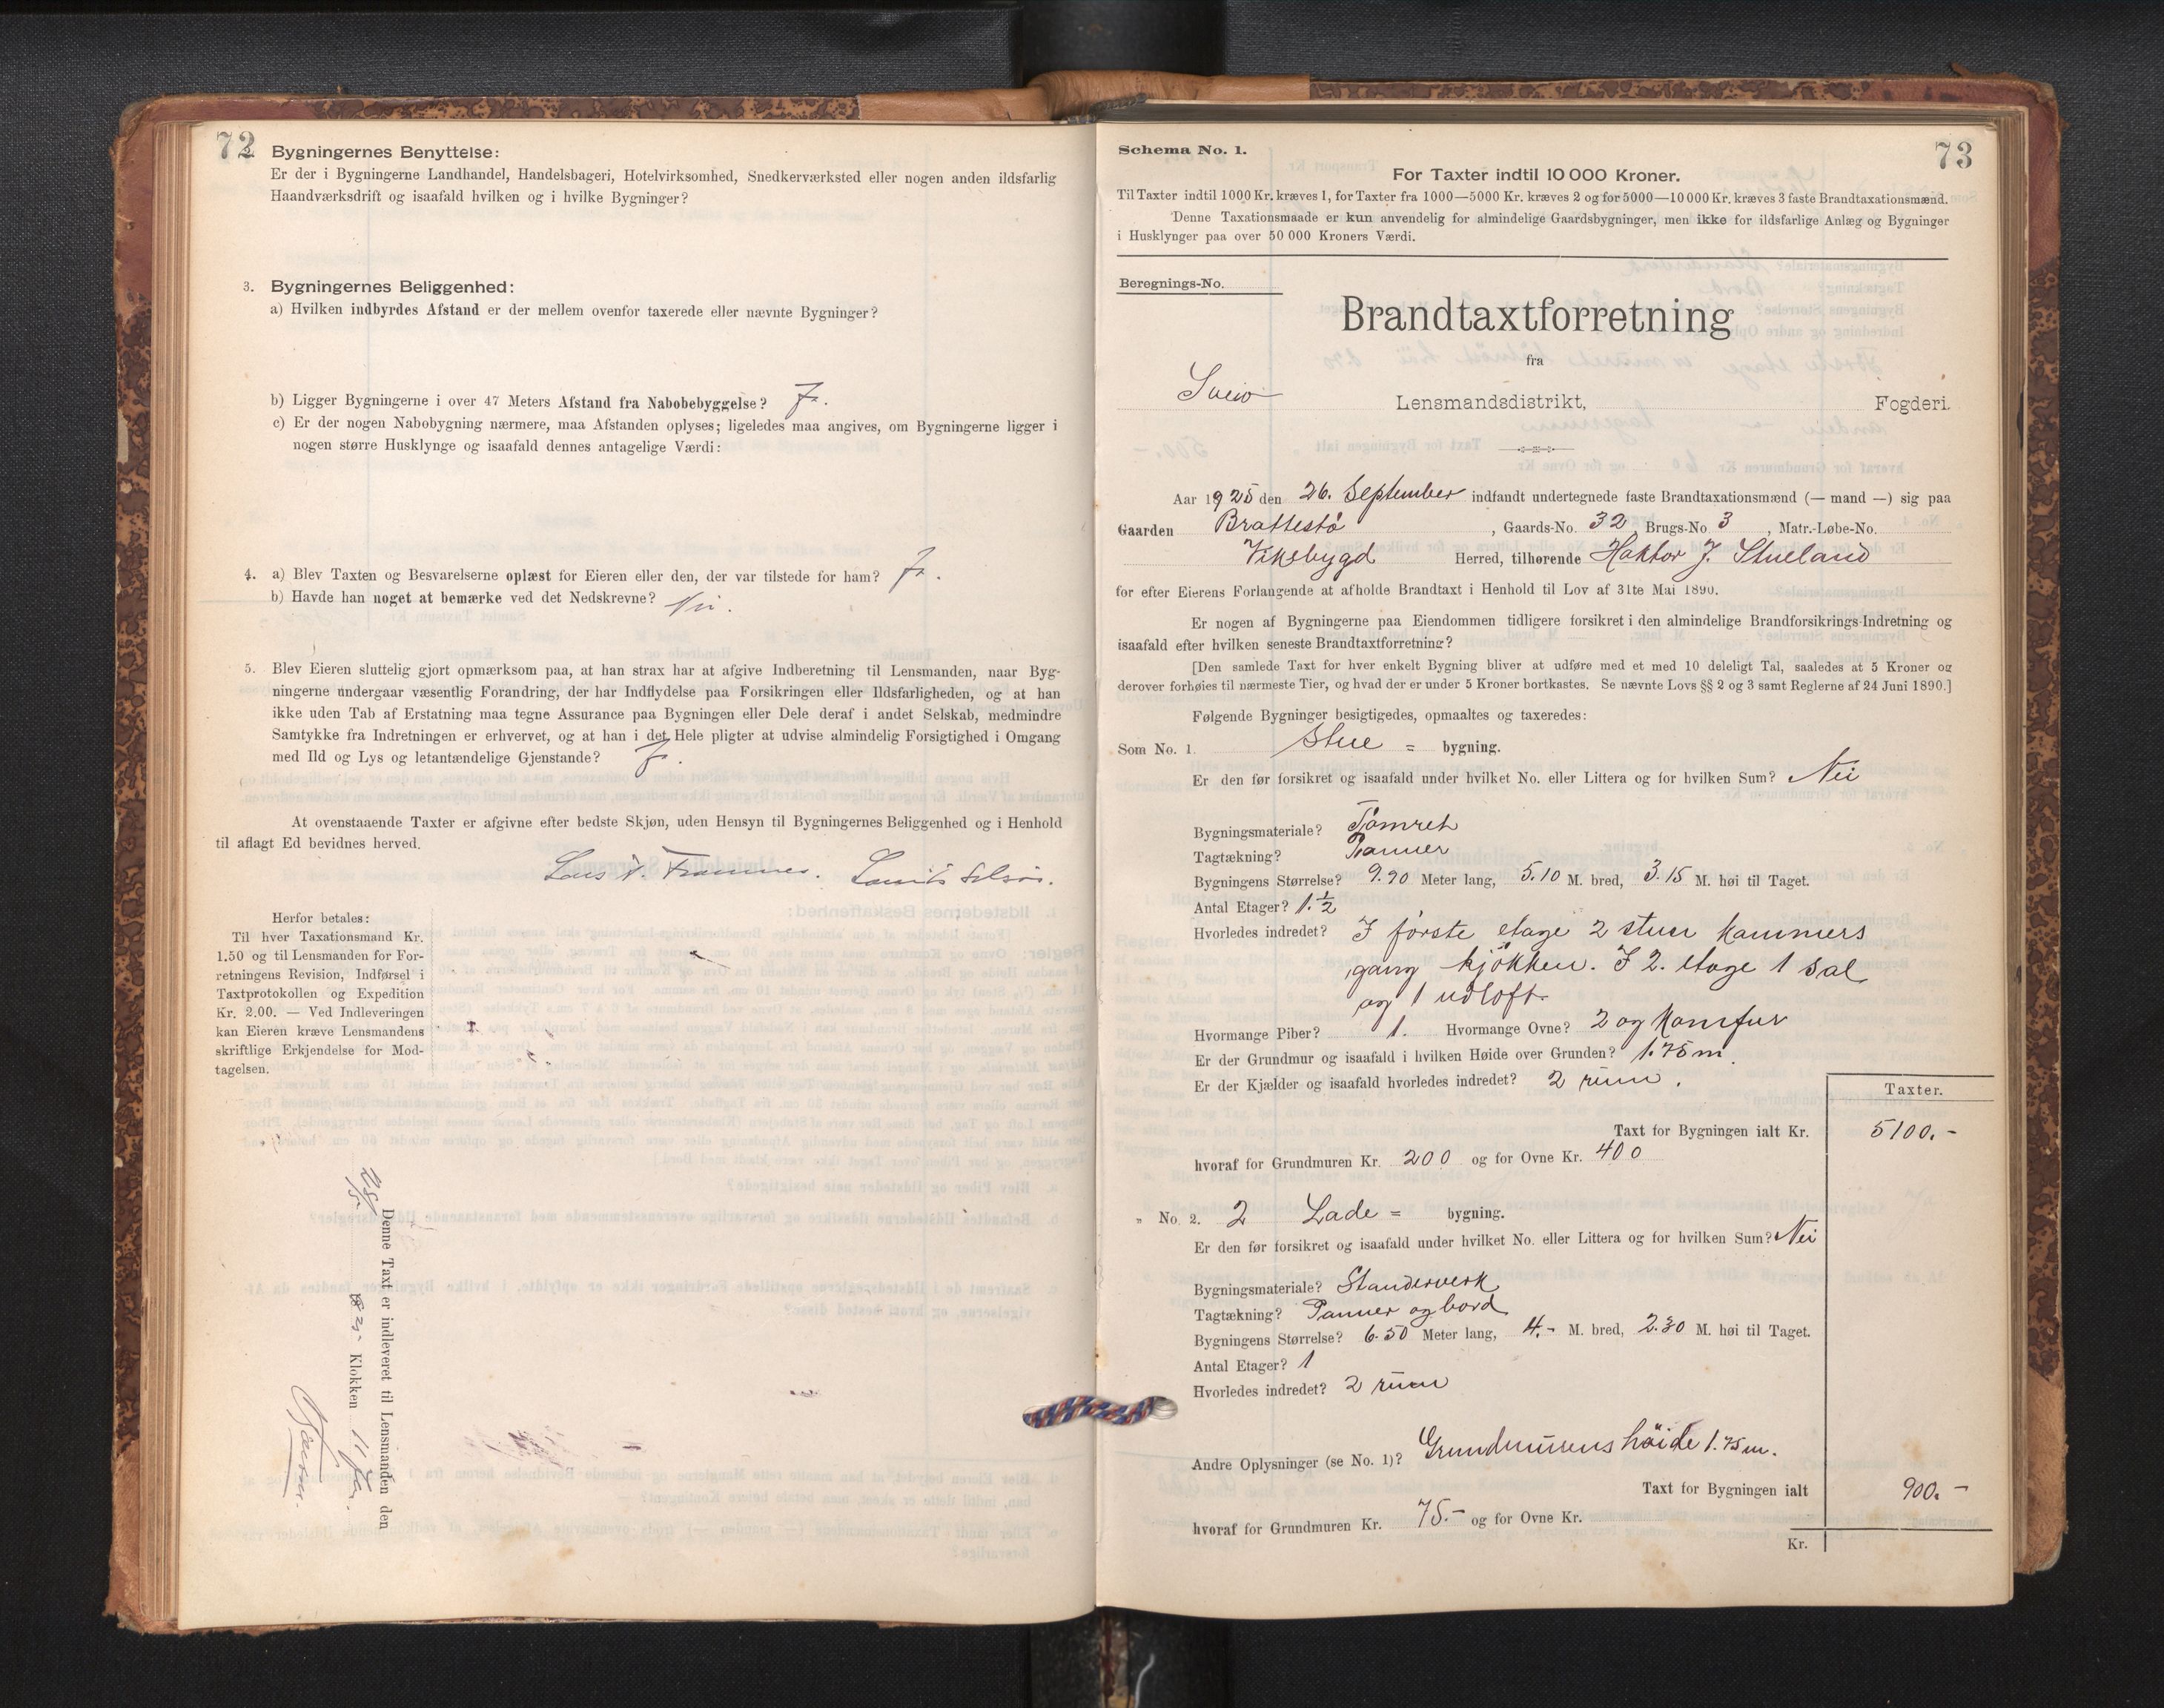 72
Bygningernes Benyttelse:
Er der i Bygningerne Landhandel, Handelsbageri, Hotelvirksomhed, Snedkerværksted eller nogen anden ildsfarlig
Haandværksdrift og isaafald hvilken og i hvilke Bygninger?
3. Bygningernes Beliggenhed:
a) Hvilken indbyrdes Afstand er der mellem ovenfor taxerede eller nævnte Bygninger?
b) Ligger Bygningerne i over 47 Meters Afstand fra Nabobebyggelse? Ja.
c) Er der nogen Nabobygning nærmere, maa Afstanden oplyses; ligeledes maa angives, om Bygningerne ligger i
nogen større Husklynge og isaafald dennes antagelige Værdi:
4. a) Blev Taxten og Besvarelserne oplæst for Eieren eller den, der var tilstede for ham? Ja.
b) Havde han noget at bemærke ved det Nedskrevne? Nei.
5. Blev Eieren sluttelig gjort opmærksom paa, at han strax har at afgive Indberetning til Lensmanden, naar Byg-
ningerne undergaar væsentlig Forandring, der har Indflydelse paa Forsikringen eller Ildsfarligheden, og at han
ikke uden Tab af Erstatning maa tegne Assurance paa Bygningen eller Dele deraf i andet Selskab, medmindre
Samtykke fra Indretningen er erhvervet, og at han i det Hele pligter at udvise almindelig Forsigtighed i Omgang
med Ild og Lys og letantændelige Gjenstande? Ja.
At ovenstaaende Taxter er afgivne efter bedste Skjøn, uden Hensyn til Bygningernes Beliggenhed og i Henhold
til aflagt Ed bevidnes herved.
Herfor betales:
Til hver Taxationsmand Kr.
1.50 og til Lensmanden for For-
retningens Revision, Indførsel i
Taxtprotokollen og Expedition
Kr. 2.00. — Ved Indleveringen
kan Eieren kræve Lensmandens
skriftlige Erkjendelse for Mod-
tagelsen.
Denne Taxt er indleveret til Lensmanden den
Klokken 11
73
Schema No. 1.
For Taxter indtil 10 000 Kroner.
Til Taxter indtil 1000 Kr. kræves 1, for Taxter fra 1000—5000 Kr. kræves 2 og for 5000—10 000 Kr. kræves 3 faste Brandtaxationsmænd.
Denne Taxationsmaade er kun anvendelig for almindelige Gaardsbygninger, men ikke for ildsfarlige Anlæg og Bygninger
i Husklynger paa over 50 000 Kroners Værdi.
Beregnings-No.
Brandtaxtforretning
fra
Sveio Lensmandsdistrikt, Fogderi.
Aar 1925 den 26. September indfandt undertegnede faste Brandtaxationsmænd (— mand —) sig paa
Gaarden Brattestø, Gaards-No. 32 Brugs-No. 3, Matr.-Løbe-No.
Viksbygd Herred, tilhørende Haktor J. Stueland
for efter Eierens Forlangende at afholde Brandtaxt i Henhold til Lov af 31te Mai 1890.
Er nogen af Bygningerne paa Eiendommen tidligere forsikret i den almindelige Brandforsikrings-Indretning og
isaafald efter hvilken seneste Brandtaxtforretning?
[Den samlede Taxt for hver enkelt Bygning bliver at udføre med et med 10 deleligt Tal, saaledes at 5 Kroner og
derover forhøies til nærmeste Tier, og hvad der er under 5 Kroner bortkastes. Se nævnte Lovs §§ 2 og 3 samt Reglerne af 24 Juni 1890.]
Følgende Bygninger besigtigedes, opmaaltes og taxeredes:
Som No. 1. Stue = bygning.
Er den før forsikret og isaafald under hvilket No. eller Littera og for hvilken Sum? Nei
Bygningsmateriale? Tømret
Tagtækning? Panner
Bygningens Størrelse? 9.90 Meter lang, 5.10 M. bred, 3.15 M. høi til Taget.
Antal Etager? 1.½
Hvorledes indredet? I første etage 2 stuer kammers
gang kjøkken. I 2. etage 1 sal
og 1 udloft.
Hvormange Piber? 1. Hvormange Ovne? 2 og Komfur
Er der Grundmur og isaafald i hvilken Høide over Grunden? 1.75 m.
Er der Kjælder og isaafald hvorledes indredet? 2 rum.
Taxter.
Taxt for Bygningen ialt Kr. 5100.-
hvoraf for Grundmuren Kr. 200 og for Ovne Kr. 400
„ No. 2. 2 Lade = bygning.
Er den før forsikret og isaafald under hvilket No. eller Littera og for hvilken Sum? Nei
Bygningsmateriale? Standerverk
Tagtækning? Panner og bord
Bygningens Størrelse? 6.50 Meter lang, 4.- M. bred, 2.30 M. høi til Taget.
Antal Etager? 1
Hvorledes indredet? 2 rum
Andre Oplysninger (se No. 1)? Grundmurens høide 1.75 m.
Taxt for Bygningen ialt 900.-
hvoraf for Grundmuren Kr. 75.- og for Ovne Kr.
Kr.